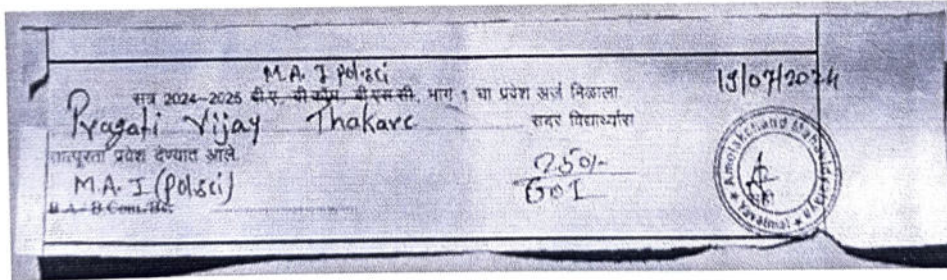 M.A. I pol.sci
19/07/2024
सत्र 2024-2025 बी.ए. बी.कॉम. बी.एस.सी. भाग १ चा प्रवेश अर्ज मिळाला
Pragati Vijay Thakare सदर विद्यार्थ्यास
तात्पुरता प्रवेश देण्यात आले.
M.A. I (pol.sci)
250/-
GOI
B.A - B.Com./BSc
Amolakchand Mahavidyalaya * Yavatmal *